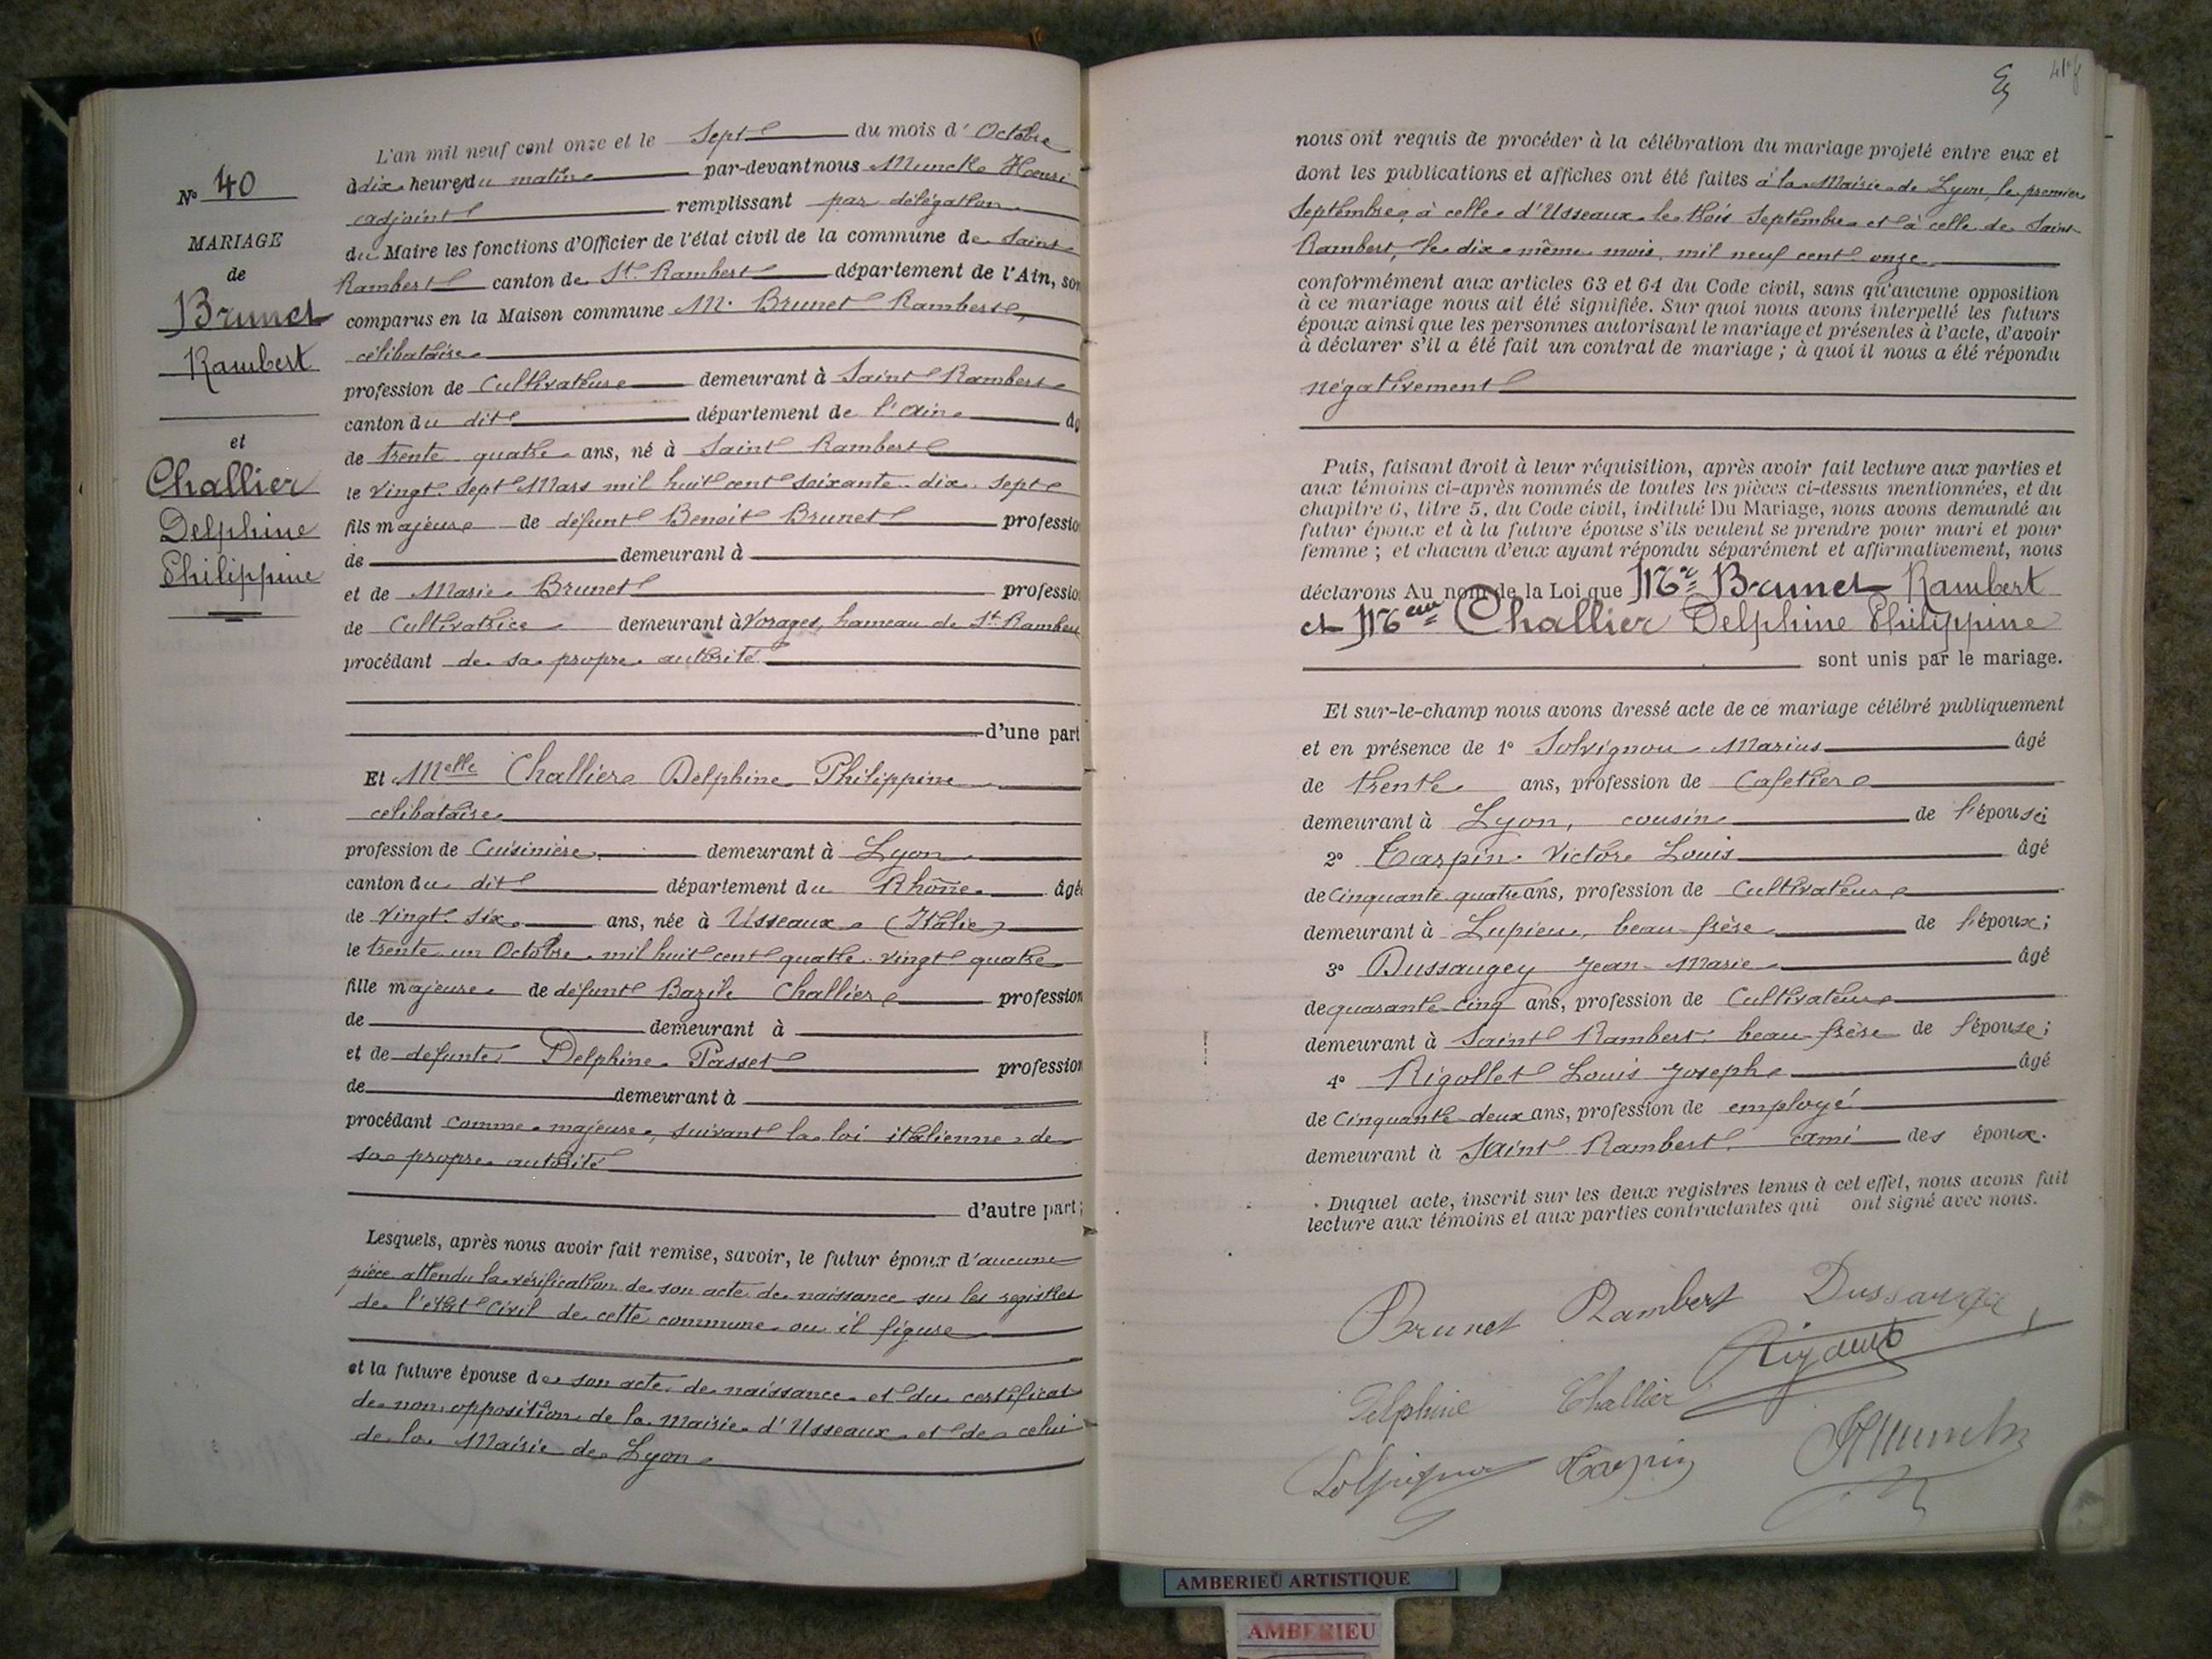 L'an mil neuf cent onze et le Sept du mois d'Octobre
à dix heures du matin par-devant nous Munck Henri
adjoint remplissant par délégation
du Maire les fonctions d'Officier de l'état civil de la commune de Saint
Rambert canton de St. Rambert département de l'Ain, son
comparus en la Maison commune M. Brunet Rambert,
célibataire
profession de Cultivateur demeurant à Saint Rambert
canton du dit département de l'Ain âg
de trente quatre ans, né à Saint Rambert
le vingt sept Mars mil huit cent soixante dix sept
fils majeur de défunt Benoit Brunet professio
de demeurant à
et de Marie Brunet professio
de Cultivatrice demeurant à Vorages, hameau de St. Rambert
procédant de sa propre autorité
d'une part
Nº 40
MARIAGE
de
Brunet
Rambert
et
Challier
Delphine
Philippine
Et Melle Challier Delphine Philippine
célibataire
profession de Cuisinière demeurant à Lyon
canton du dit département du Rhône âgé
de vingt six ans, née à Usseaux (Italie)
le trente un Octobre mil huit cent quatre vingt quatre
fille majeure de défunt Bazile Challier profession
de demeurant à
et de défunte Delphine Passet profession
de demeurant à
procédant comme majeure, suivant la loi italienne de
sa propre autorité
d'autre part;
Lesquels, après nous avoir fait remise, savoir, le futur époux d'aucune
pièce attendu la vérification de son acte de naissance sur les registres
de l'état Civil de cette commune ou il figure
et la future épouse de son acte de naissance et du certificat
de non opposition de la Mairie d'Usseaux et de celui
de la Mairie de Lyon
41
nous ont requis de procéder à la célébration du mariage projeté entre eux et
dont les publications et affiches ont été faites à la Mairie de Lyon, le premier
Septembre, à celle d'Usseaux le trois Septembre et à celle de Saint
Rambert, le dix même mois, mil neuf cent onze
conformément aux articles 63 et 64 du Code civil, sans qu'aucune opposition
à ce mariage nous ait été signifiée. Sur quoi nous avons interpellé les futurs
époux ainsi que les personnes autorisant le mariage et présentes à l'acte, d'avoir
à déclarer s'il a été fait un contrat de mariage; à quoi il nous a été répondu
négativement
Puis, faisant droit à leur réquisition, après avoir fait lecture aux parties et
aux témoins ci-après nommés de toutes les pièces ci-dessus mentionnées, et du
chapitre 6, titre 5, du Code civil, intitulé Du Mariage, nous avons demandé au
futur époux et à la future épouse s'ils veulent se prendre pour mari et pour
femme; et chacun d'eux ayant répondu séparément et affirmativement, nous
déclarons Au nom de la Loi que Mr Brunet Rambert
et Challier Delphine Philippine
sont unis par le mariage.
Et sur-le-champ nous avons dressé acte de ce mariage célébré publiquement
et en présence de 1º Solvignon Marius âgé
de trente ans, profession de Cafetier
demeurant à Lyon, cousin de l'épouse;
2º Tarpin Victor Louis âgé
de Cinquante quatre ans, profession de Cultivateur
demeurant à Lupieu, beau-frère de l'époux;
3º Dussaugey Jean-Marie âgé
de quarante cinq ans, profession de Cultivateur
demeurant à Saint Rambert, beau-frère de l'épouse;
4º Rigollet Louis Joseph âgé
de Cinquante deux ans, profession de employé
demeurant à Saint Rambert ami des époux.
Duquel acte, inscrit sur les deux registres tenus à cet effet, nous avons fait
lecture aux témoins et aux parties contractantes qui ont signé avec nous.
Brunet Rambert Dussauge
Delphine Challier
Tarpin HMunck
AMBERIEU ARTISTIQUE
AMBERIEU